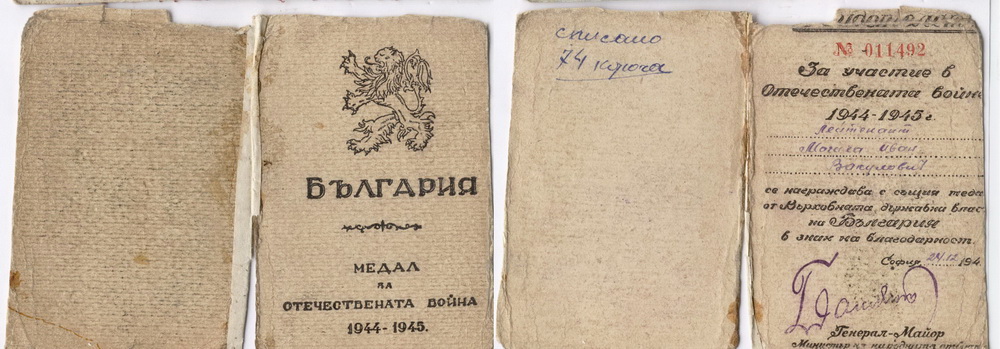 БЪЛГАРИЯ
МЕДАЛ
ЗА
ОТЕЧЕСТВЕНАТА ВОЙНА
1944-1945.
списано
74 ключа
№ 011492
За участие в
Отечествената войн
1944-1945 г.
Лейтенант
Могила Иван
Вакулович
се награждава с същия меда
от Върховната държавна влас
на България
в знак на благодарност.
София, 24.12 194
Генерал-Майор
Министър на народната отбрана